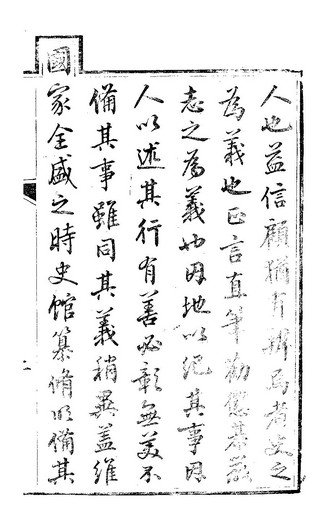 人也益信顧猶有辨焉者史之
為義也正言直筆勸懲慕嚴
志之為義也因地以紀其事因
人以述其行有善必彰無美不
備其事雖同其義稍異蓋維
國家全盛之時史館纂脩明備其